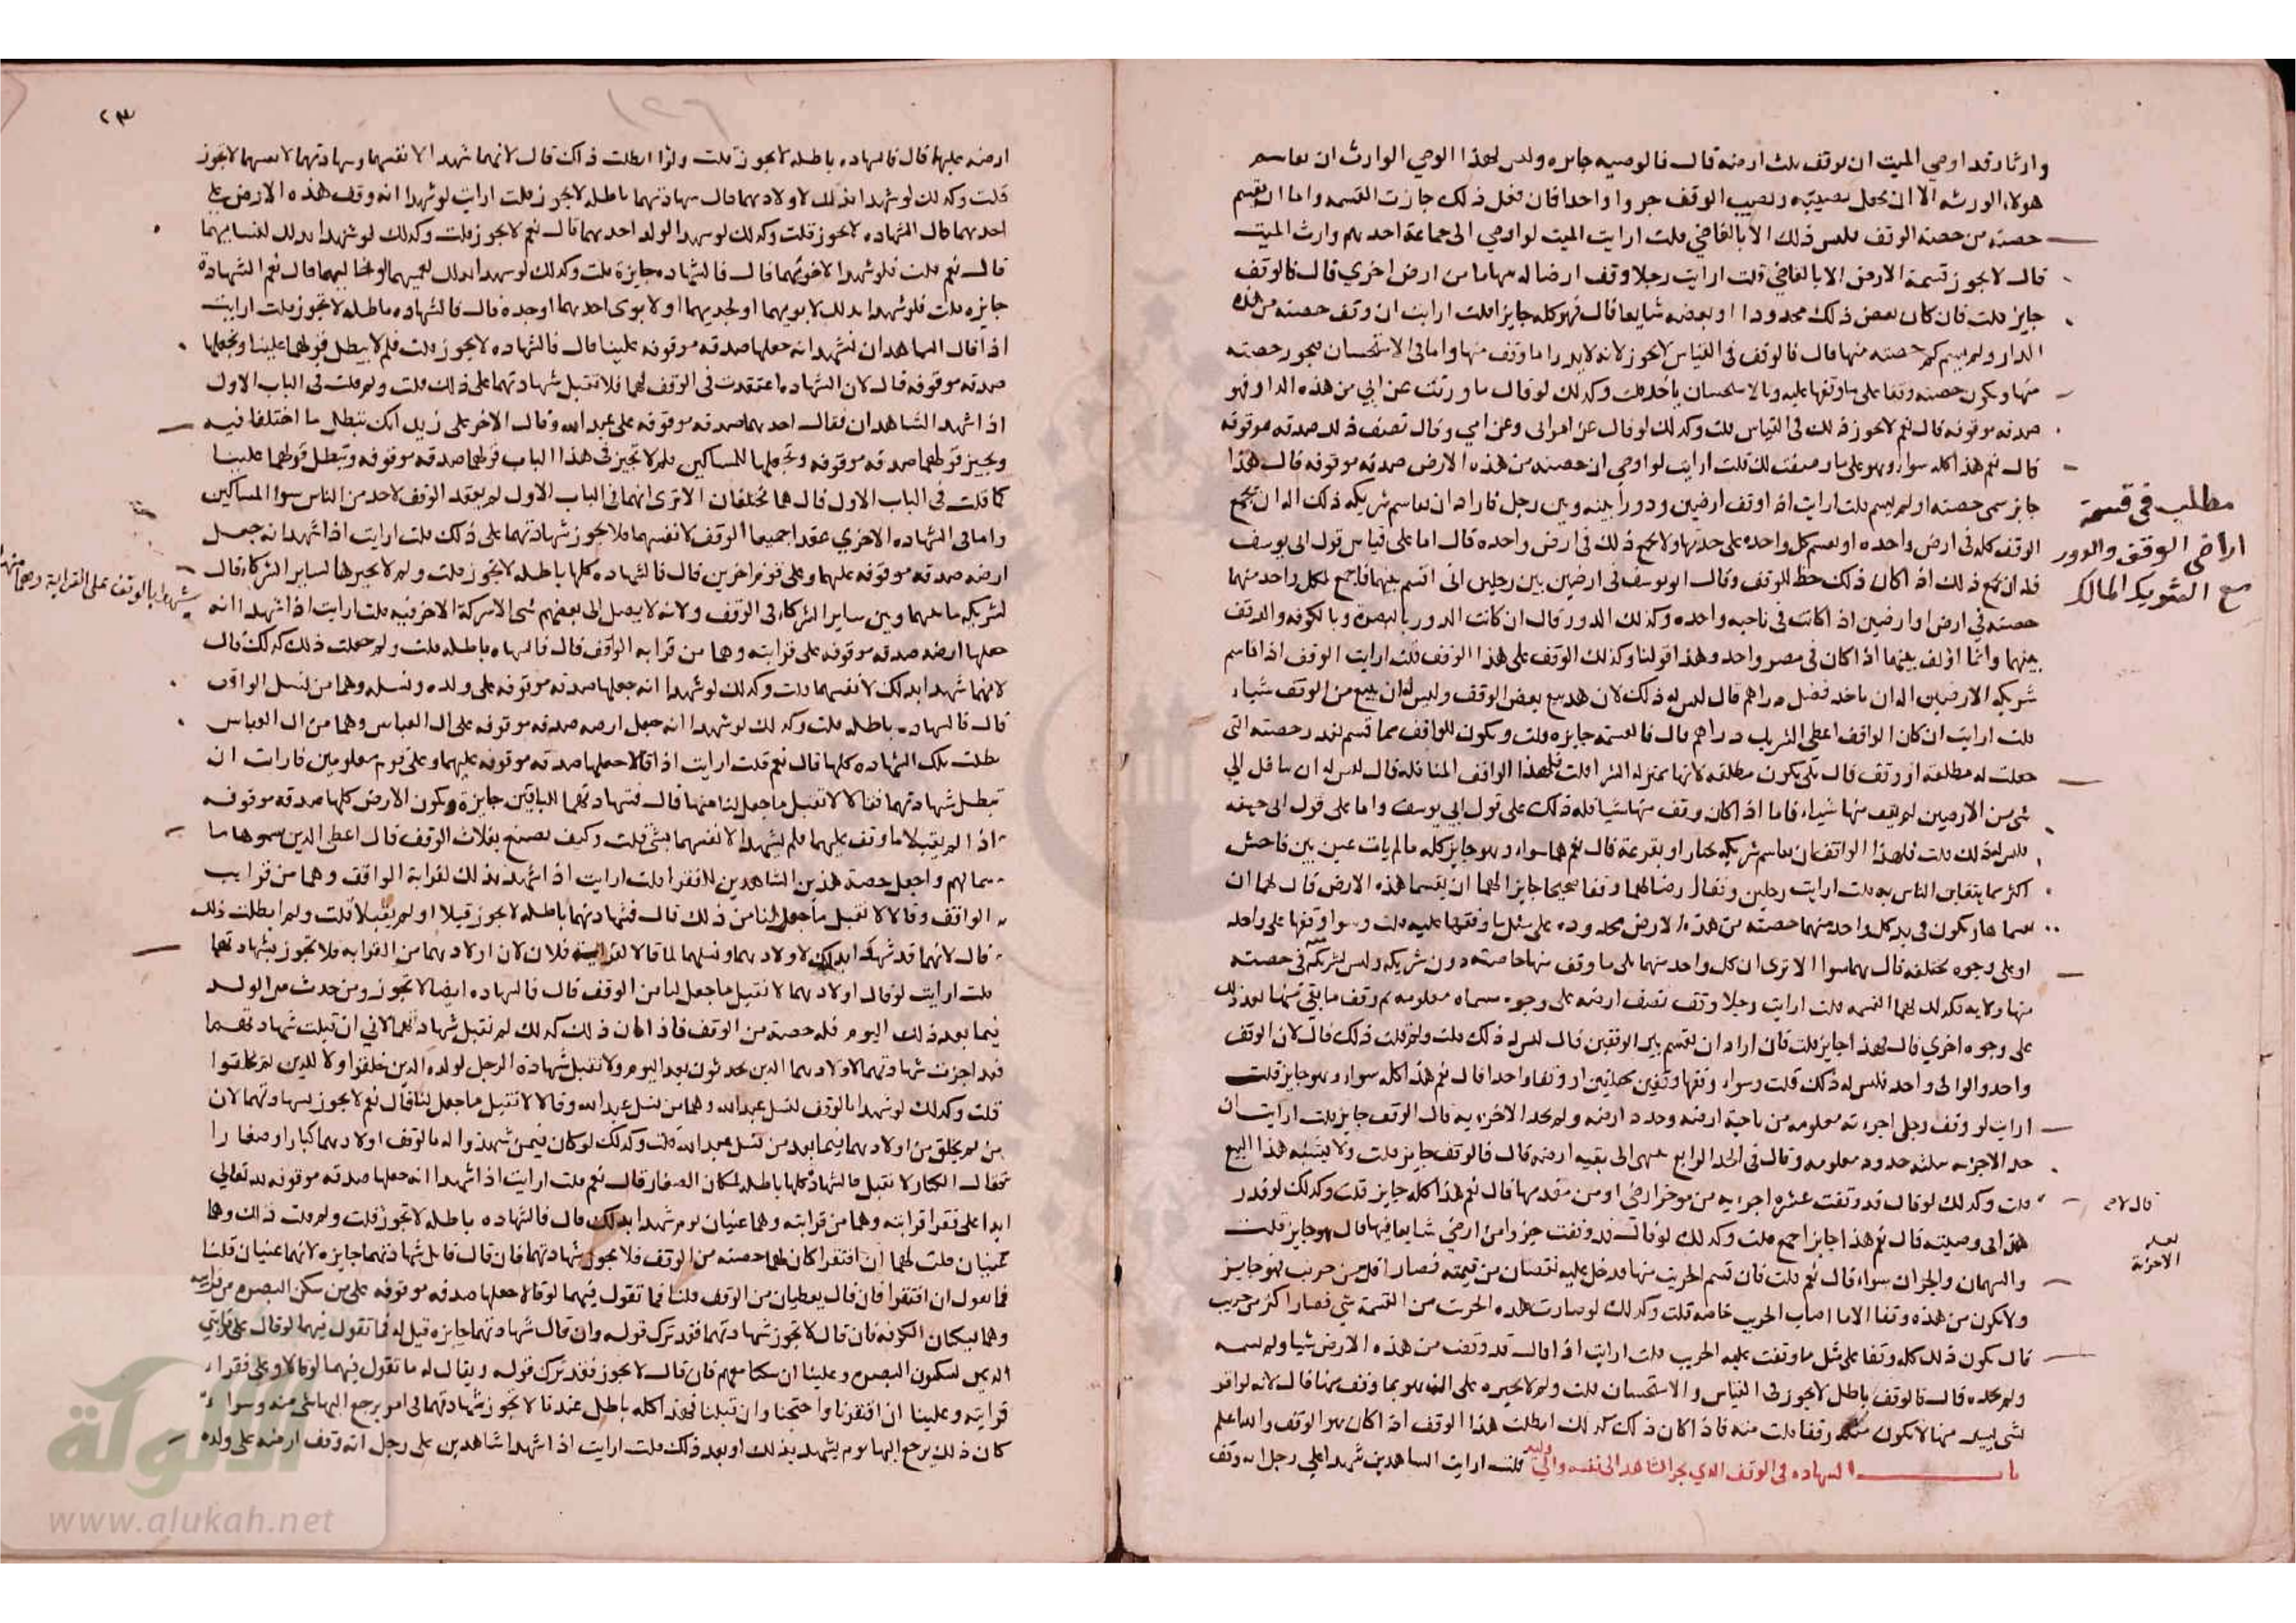 وارثا وقد اوصي الميت ان يوقف ثلث ارضه قال فالوصيه جايزه وليس لهذا الوصي الوارث ان يقاسم
هولاء الورثه الا ان يجعل نصيبه ونصيب الوقف جزوا واحدا فان فعل ذلك جازت القسمه واما ان يقسم
حصته من حصه الوقف فليس ذلك الا بالقاضي قلت ارايت الميت لو اوصي الى جماعة احدهم وارث الميت
قال لا يجوز قسمة الارض الا بالقاضي قلت ارايت رجلا وقف ارضا له سهاما من ارض اخري قال فالوقف
جايز قلت فان كان بعض ذلك محدودا او بعضه شايعا قال فهو كله جايز قلت ارايت ان وقف حصته من هذه
الدار ولم يسم كم حصته منها قال فالوقف في القياس لا يجوز لانه لا يدرا ما وقف منها واما في الاستحسان فيجوز حصته
منها ويكون حصته وقفا على ما وقفها عليه وبالاستحسان ياخذ قلت وكذلك لو قال ما ورثت عن ابي من هذه الدار فهو
صدقه موقوفه قال نعم لا يجوز ذلك في القياس قلت وكذلك لو قال عن امراتي وعن امي وقال نصف ذلك صدقه موقوفه
قال نعم هذا كله سواء وهو على ما وصفت لك قلت ارايت لو اوصي ان حصته من هذه الارض صدقه موقوفه قال هذا
جايز سمى حصته او لم يسم قلت ارايت اذا وقف ارضين ودورا بينه وبين رجل فاراد ان يقاسم شريكه ذلك اله ان يجمع
الوقف كله في ارض واحده او يقسم كل واحده على حدتها ولا يجمع ذلك في ارض واحده قال اما على قياس قول ابي يوسف
فله ان يجمع ذلك اذا كان ذلك حظ للوقف وقال ابو يوسف في ارضين بين رجلين اني اقسم بينهما فاجمع لكل واحد منهما
حصته في ارض او ارضين اذا كانت في ناحيه واحده وكذلك الدور قال ان كانت الدور بالبصره وبالكوفه
بينهما وانما اؤلف بينهما اذا كان في مصر واحد وهذا قولنا وكذلك الوقف على هذا الوقف قلت ارايت الوقف اذا قاسم
شريكه الارضين اله ان ياخذ فضل دراهم قال ليس له ذلك لان هذا بيع بعض الوقف وليس له ان يبيع من الوقف شياء
قلت ارايت ان كان الواقف اعطى الشريك دراهم قال فالقسمة جايزه قلت ويكون للواقف مما قسم بقدر حصته التي
جعلت له مطلقه او وقف قال بلى يكون مطلقه لانها بمنزله الشرا قلت فلهذا الواقف المناقله قال ليس له ان يناقل الي
شي من الارضين لم يقف منها شياء فاما اذا كان وقف منها شيا فله ذلك على قول ابي يوسف واما على قول ابي حنيفه
فليس له ذلك قلت فلهذا الواقف ان يقاسم شريكه بخيار او بقرعة قال نعم هما سواء وهو جايز كله ما لم يات غبن بين فاحش
اكثر مما يتغابن الناس به قلت ارايت رجلين وقفا ارضا لهما وقفا صحيحا جايز الهما ان يقسما هذه الارض قال لهما ان
يقسماها ويكون في يد كل واحد منهما حصته من هذه الارض محدوده على مثل ما وقفها عليه قلت وسوا وقفها على واحده
او على وجوه مختلفه قال هما سوا الا ترى ان كل واحد منهما يلى ما وقف منها خاصته دون شريكه وليس لشريكه في حصته
منها ولايه فكذلك لهما القسمه قلت ارايت رجلا وقف نصف ارضه على وجوه مسماه معلومه ثم وقف ما بقي منها بعد ذلك
على وجوه اخري قال فهذا جايز قلت فان اراد ان يقسم بين الوقفين قال ليس له ذلك قلت ولم قلت ذلك قال لان الوقف
واحد والوالى واحد فليس له ذلك قلت وسواء وقفها وقفين مختلفين او وقفا واحدا قال نعم هذا كله سواء وهو جايز قلت
ارايت لو وقف رجل اجربة معلومه من ناحية ارضه وحدد ارضه ولم يحد الاجربه قال الوقف جايز قلت ارايت ان
حد الاجربه بثلثه حدود معلومه وقال في الحد الرابع ينتهي الى بقيه ارضه قال فالوقف جايز قلت ولا يشبه هذا البيع
قلت وكذلك لو قال قد وقفت عشره اجربه من موخر ارضي او من مقدمها قال نعم هذا كله جايز قلت وكذلك لو قدر
هذا في وصيته قال نعم هذا جايز اجمع قلت وكذلك لو قال قد وقفت جزوا من ارضي شايعا فيها قال هو جايز قلت
والسهمان والجزان سواء قال نعم قلت فان قسم الجريب منها فدخل عليه نقصان من قيمته فصار اقل من جريب فهو جايز
ولا يكون من هذه وقفا الا ما اصاب الجريب خاصه قلت وكذلك لو صارت هذه الجريب من القسمة شي فصار اكثر من جريب
قال يكون ذلك كله وقفا على مثل ما وقفت عليه الجريب قلت ارايت اذا قال قد وقفت من هذه الارض شيا ولم يسمه
ولم يحده قال فالوقف باطل لا يجوز في القياس والاستحسان قلت ولم لا يجبره على ان يقر بما وقف منها قال لانه لو اقر
بشي يسير منها لا يكون مثله وقفا قلت منه فاذا كان ذلك كذلك ابطلت هذا الوقف اذا كان هو الوقف والله اعلم
باب الشهاده في الوقف الذي يجر الشاهد الى نفسه والى وليه قلت ارايت الشاهدين شهدا على رجل انه وقف
مطلب في قسمة
اراضي الوقف والدور
مع الشريك المالك
٢٣
ارضه عليها قال فالشهاده باطله لا يجوز قلت ولم ابطلت ذلك قال لانهما شهدا لانفسهما وشهادتهما لانفسهما لا تجوز
قلت وكذلك لو شهدا بذلك لاولادهما قال شهادتهما باطله لا تجوز قلت ارايت لو شهدا انه وقف هذه الارض على
احدهما قال الشهاده لا تجوز قلت وكذلك لو شهدا لولد احدهما قال نعم لا تجوز قلت وكذلك لو شهدا بذلك لنسائهما
قال نعم قلت فلو شهدا لاخوتهما قال فالشهاده جايزة قلت وكذلك لو شهدا بذلك لعميهما او لخاليهما قال نعم الشهادة
جايزه قلت فلو شهدا بذلك لابويهما او لجديهما او لابوى احدهما او جده قال فالشهاده باطله لا تجوز قلت ارايت
اذا قال الشاهدان نشهد انه جعلها صدقه موقوفه علينا قال فالشهاده لا تجوز قلت فلم لا يبطل قولهما علينا وتجعلها
صدقه موقوفه قال لان الشهاده اعتقدت في الوقف لهما فلا تقبل شهادتهما على ذلك قلت ولم قلت في الباب الاول
اذا شهد الشاهدان فقال احدهما صدقه موقوفه على عبد الله وقال الاخر على زيد انك تبطل ما اختلفا فيه
وتجيز قولهما صدقه موقوفه وتجعلها للمساكين فلم لا تجيز في هذا الباب قولهما صدقه موقوفه وتبطل قولهما علينا
كما قلت في الباب الاول قال هما مختلفان الا ترى انهما في الباب الاول لم يعقد الوقف لاحد من الناس سوا المساكين
واما في الشهاده الاخري عقدا جميعا الوقف لانفسهما فلا تجوز شهادتهما على ذلك قلت ارايت اذا شهدا انه جعل
ارضه صدقه موقوفه عليهما وعلى قوم اخرين قال فالشهاده كلها باطله لا تجوز قلت ولم لا تجيزها لساير الشركاء قال
لشركه ما بينهما وبين ساير الشركاء في الوقف ولانه لا يصل الى بعضهم شى الا شركه الاخر فيه قلت ارايت اذا شهدا انه
جعلها ارضه صدقه موقوفه على قرابته وهما من قرابه الواقف قال فالشهاده باطله قلت ولم جعلت ذلك كذلك قال
لانهما شهدا بذلك لانفسهما قلت وكذلك لو شهدا انه جعلها صدقه موقوفه على ولده ونسله وهما من نسل الواقف
قال فالشهاده باطله قلت وكذلك لو شهدا انه جعل ارضه صدقه موقوفه على ال العباس وهما من ال العباس
بطلت تلك الشهاده كلها قال نعم قلت ارايت اذا قالا جعلها صدقه موقوفه عليهما وعلى قوم معلومين فارات ان
تبطل شهادتهما فقالا لا نقبل ما جعل لنا منها قال فشهادتهما للباقين جايزة ويكون الارض كلها صدقه موقوفه
اذا لم يقبلا ما وقف عليهما فلم يشهدا لانفسهما بشي قلت وكيف تصنع بغلات الوقف قال اعطى الذين سموها ما
سما لهم واجعل حصة هذين الشاهدين للفقرا قلت ارايت اذا شهدا بذلك لقرابة الواقف وهما من قرايب
الواقف وقالا لا نقبل ما جعل لنا من ذلك قال فشهادتهما باطله لا تجوز قبلا او لم يقبلا قلت ولم ابطلت ذلك
قال لانهما قد شهدا بذلك لاولادهما ونسلهما لما قالا لقرابة فلان لان اولادهما من القرابه فلا تجوز شهادتهما
قلت ارايت لو قال اولادهما لا نقبل ما جعل لنا من الوقف قال فالشهاده ايضا لا تجوز ومن حدث من الولد
فيما بعد ذلك اليوم فله حصته من الوقف فاذا كان ذلك كذلك لم نقبل شهادتهما لاني ان قبلت شهادتهما
فقد اجزت شهادتهما لاولادهما الذين يحدثون بعد اليوم ولا نقبل شهادة الرجل لولده الذين خلقوا ولا للذين لم يخلقوا
قلت وكذلك لو شهدا بالوقف لنسل عبد الله وهما من نسل عبد الله وقالا لا نقبل ما جعل لنا قال نعم لا يجوز شهادتهما لان
من لم يخلق من اولادهما فيما بعد من نسل عبد الله قلت وكذلك لو كان فيمن شهدوا له بالوقف اولادهما كبارا وصغارا
فقال الكبار لا نقبل فالشهادة كلها باطله لمكان الصغار قال نعم قلت ارايت اذا شهدا انه جعلها صدقه موقوفه لله تعالى
ابدا على فقرا قرابته وهما من قرابته وهما غنيان يوم شهدا بذلك قال فالشهاده باطله لا تجوز قلت ولم قلت ذلك وهما
غنيان قلت لهما ان افتقرا كان لهما حصته من الوقف فلا تجوز شهادتهما فان قال قايل شهادتهما جايزه لانهما غنيان قلنا
فما تقول ان افتقرا فان قال يعطيان من الوقف قلنا فما تقول فيهما لو قالا جعلها صدقه موقوفه على من سكن البصره من قرابته
وهما يسكنان الكوفه فان قال لا تجوز شهادتهما فقد ترك قوله وان قال شهادتهما جايزه قيل له فما تقول فيهما لو قال على قرابتي
الذين يسكنون البصره وعلينا ان سكنا معهم فان قال لا يجوز فقد ترك قوله ويقال له ما تقول فيهما لو قالا وعلى فقراء
قرابته وعلينا ان افتقرنا واحتجنا وان قبلنا فهذا كله باطل عندنا لا تجوز شهادتهما في امر يرجع اليهما شى منه وسواء
كان ذلك يرجع اليهما يوم يشهد بذلك او بعد ذلك قلت ارايت اذا شهدا شاهدين على رجل انه وقف ارضه على ولده
الألوكة
www.alukah.net